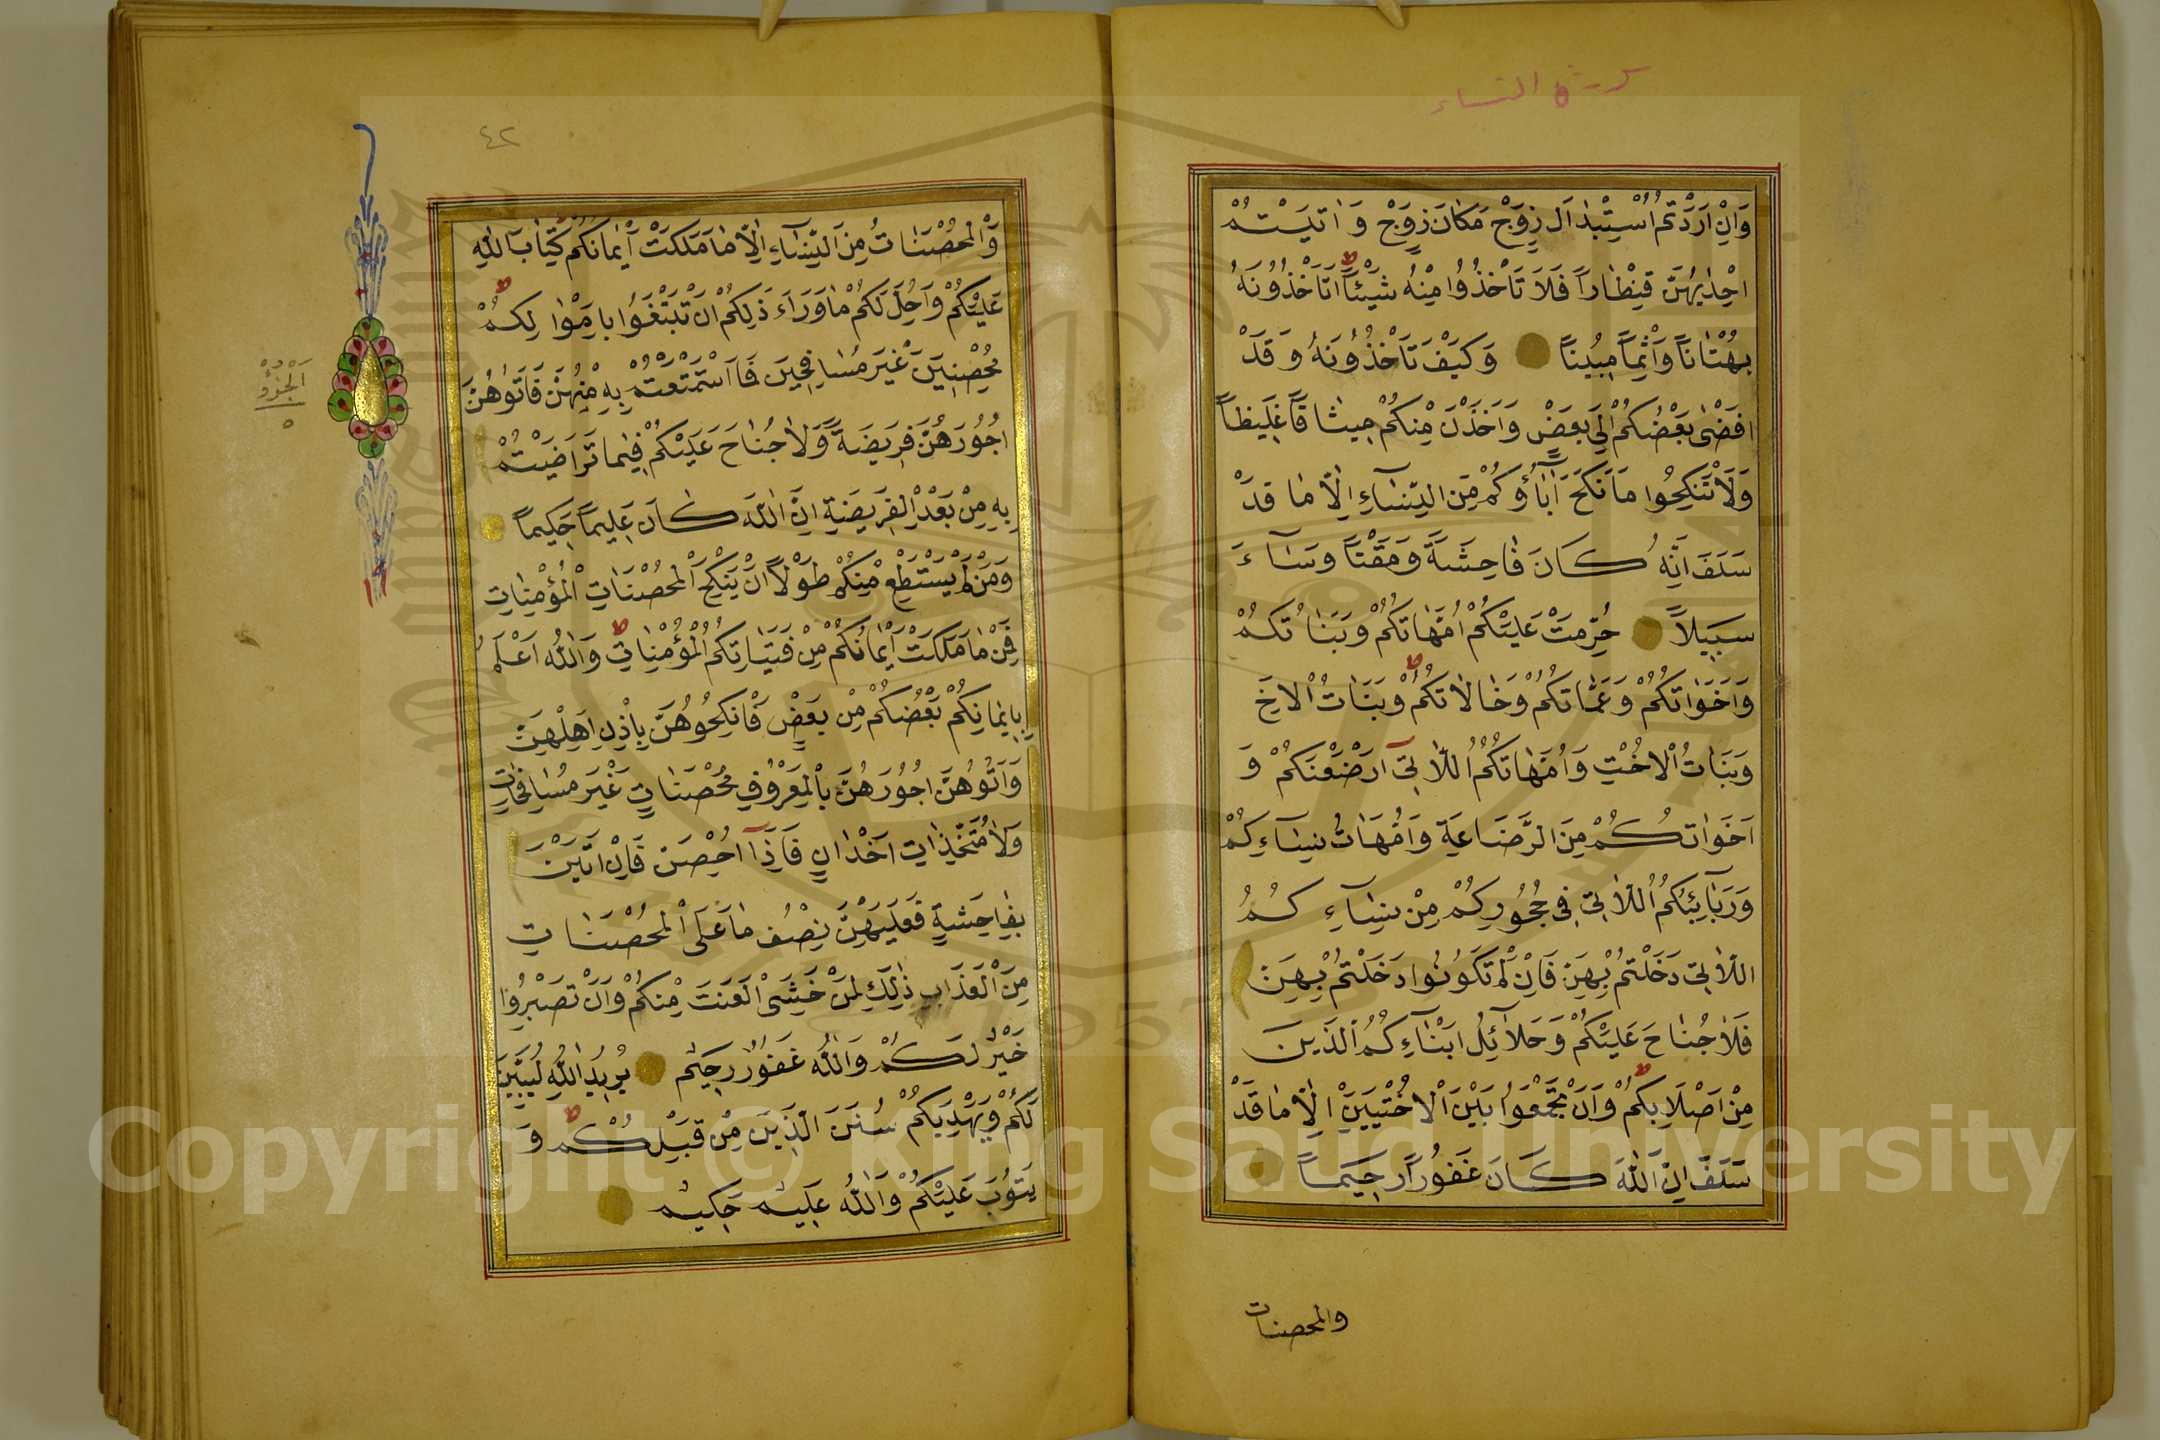 سورة النساء
وَاِنْ اَرَدْتُمُ اسْتِبْدَالَ زَوْجٍ مَكَانَ زَوْجٍ وَاٰتَيْتُمْ
اِحْدٰيهُنَّ قِنْطَاراً فَلَا تَأْخُذُوا مِنْهُ شَيْئاً اَتَأْخُذُونَهُ
بُهْتَاناً وَاِثْماً مُبِيناً وَكَيْفَ تَأْخُذُونَهُ وَقَدْ
اَفْضٰى بَعْضُكُمْ اِلٰى بَعْضٍ وَاَخَذْنَ مِنْكُمْ مِيثَاقاً غَلِيظاً
وَلَا تَنْكِحُوا مَا نَكَحَ اٰبَاؤُكُمْ مِنَ النِّسَاءِ اِلَّا مَا قَدْ
سَلَفَ اِنَّهُ كَانَ فَاحِشَةً وَمَقْتاً وَسَاءَ
سَبِيلاً حُرِّمَتْ عَلَيْكُمْ اُمَّهَاتُكُمْ وَبَنَاتُكُمْ
وَاَخَوَاتُكُمْ وَعَمَّاتُكُمْ وَخَالَاتُكُمْ وَبَنَاتُ الْاَخِ
وَبَنَاتُ الْاُخْتِ وَاُمَّهَاتُكُمُ اللَّاتِي اَرْضَعْنَكُمْ وَ
اَخَوَاتُكُمْ مِنَ الرَّضَاعَةِ وَاُمَّهَاتُ نِسَاءِكُمْ
وَرَبَائِبُكُمُ اللَّاتِي فِي حُجُورِكُمْ مِنْ نِسَاءِكُمُ
اللَّاتِي دَخَلْتُمْ بِهِنَّ فَاِنْ لَمْ تَكُونُوا دَخَلْتُمْ بِهِنَّ
فَلَا جُنَاحَ عَلَيْكُمْ وَحَلَائِلُ اَبْنَاءِكُمُ الَّذِينَ
مِنْ اَصْلَابِكُمْ وَاَنْ تَجْمَعُوا بَيْنَ الْاُخْتَيْنِ اِلَّا مَا قَدْ
سَلَفَ اِنَّ اللّٰهَ كَانَ غَفُوراً رَحِيماً
والمحصنات
٤٢
وَالْمُحْصَنَاتُ مِنَ النِّسَاءِ اِلَّا مَا مَلَكَتْ اَيْمَانُكُمْ كِتَابَ اللّٰهِ
عَلَيْكُمْ وَاُحِلَّ لَكُمْ مَا وَرَاءَ ذٰلِكُمْ اَنْ تَبْتَغُوا بِاَمْوَالِكُمْ
مُحْصِنِينَ غَيْرَ مُسَافِحِينَ فَمَا اسْتَمْتَعْتُمْ بِهِ مِنْهُنَّ فَاٰتُوهُنَّ
اُجُورَهُنَّ فَرِيضَةً وَلَا جُنَاحَ عَلَيْكُمْ فِيمَا تَرَاضَيْتُمْ
بِهِ مِنْ بَعْدِ الْفَرِيضَةِ اِنَّ اللّٰهَ كَانَ عَلِيماً حَكِيماً
وَمَنْ لَمْ يَسْتَطِعْ مِنْكُمْ طَوْلاً اَنْ يَنْكِحَ الْمُحْصَنَاتِ الْمُؤْمِنَاتِ
فَمِنْ مَا مَلَكَتْ اَيْمَانُكُمْ مِنْ فَتَيَاتِكُمُ الْمُؤْمِنَاتِ وَاللّٰهُ اَعْلَمُ
بِاِيمَانِكُمْ بَعْضُكُمْ مِنْ بَعْضٍ فَانْكِحُوهُنَّ بِاِذْنِ اَهْلِهِنَّ
وَاٰتُوهُنَّ اُجُورَهُنَّ بِالْمَعْرُوفِ مُحْصَنَاتٍ غَيْرَ مُسَافِحَاتٍ
وَلَا مُتَّخِذَاتِ اَخْدَانٍ فَاِذَا اُحْصِنَّ فَاِنْ اَتَيْنَ
بِفَاحِشَةٍ فَعَلَيْهِنَّ نِصْفُ مَا عَلَى الْمُحْصَنَاتِ
مِنَ الْعَذَابِ ذٰلِكَ لِمَنْ خَشِيَ الْعَنَتَ مِنْكُمْ وَاَنْ تَصْبِرُوا
خَيْرٌ لَكُمْ وَاللّٰهُ غَفُورٌ رَحِيمٌ يُرِيدُ اللّٰهُ لِيُبَيِّنَ
لَكُمْ وَيَهْدِيَكُمْ سُنَنَ الَّذِينَ مِنْ قَبْلِكُمْ وَ
يَتُوبَ عَلَيْكُمْ وَاللّٰهُ عَلِيمٌ حَكِيمٌ
اَلْجُزْؤُ
٥
Copyright © King Saud University
1957